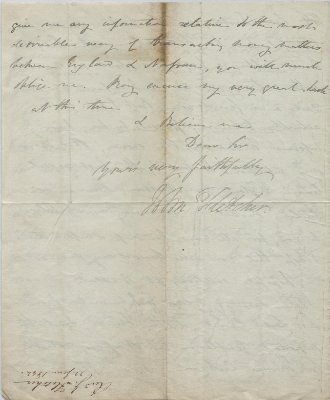 give me any information relative to the most
desirable way of transacting money matters
between England &
you will much
oblige me. Pray excuse my very great
at this time
& Believe me
Dear Sir
Yours very faithfully
John Fletcher
Fletcher